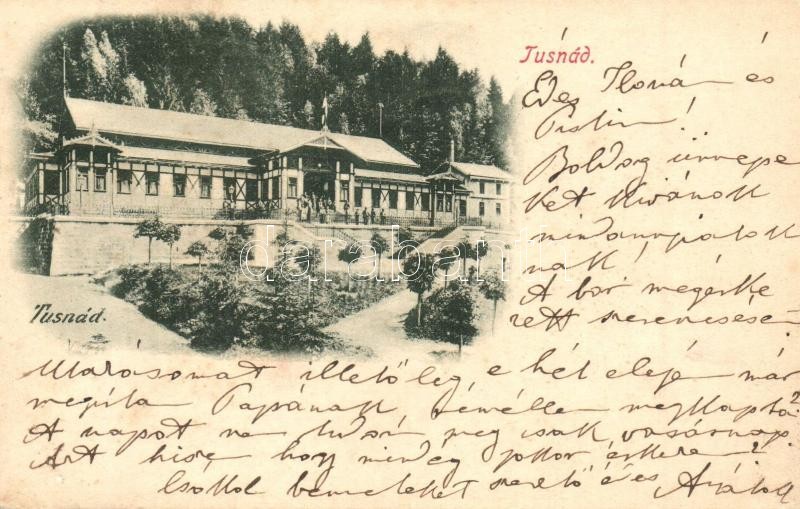 Tusnád.
Édes Ilona és
Pistim!
Boldog ünnepe
ket kivánok
mindannyiatok
nak!
A bor megérke
zett szerencsésen
Tusnád.
Utazásomat illetőleg, e hét elején már
megírta Papának, remélem megkapta?
A napot ne tudom még csak vasárnap.
Azt hiszem hogy mindég jókor érkezem?
Csókol benneteket szerető
darabanth.com